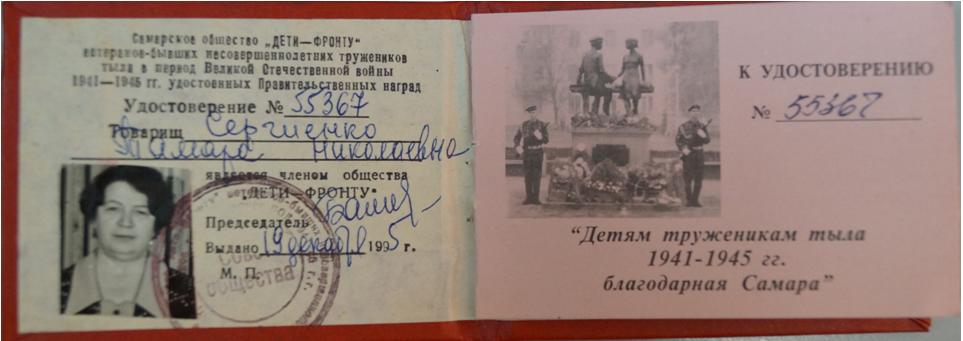 Самарское общество „ДЕТИ—ФРОНТУ"
ветеранов-бывших несовершеннолетних тружеников
тыла в период Великой Отечественной войны
1941—1945 гг. удостоенных Правительственных наград
Удостоверение № 55367
Товарищ Сергиенко
Тамара Николаевна
является членом общества
„ДЕТИ-ФРОНТУ"
Председатель
Выдано 19 декабря 1995 г.
М. П.
общества
К УДОСТОВЕРЕНИЮ
№ 55367
"Детям труженикам тыла
1941-1945 гг.
благодарная Самара"